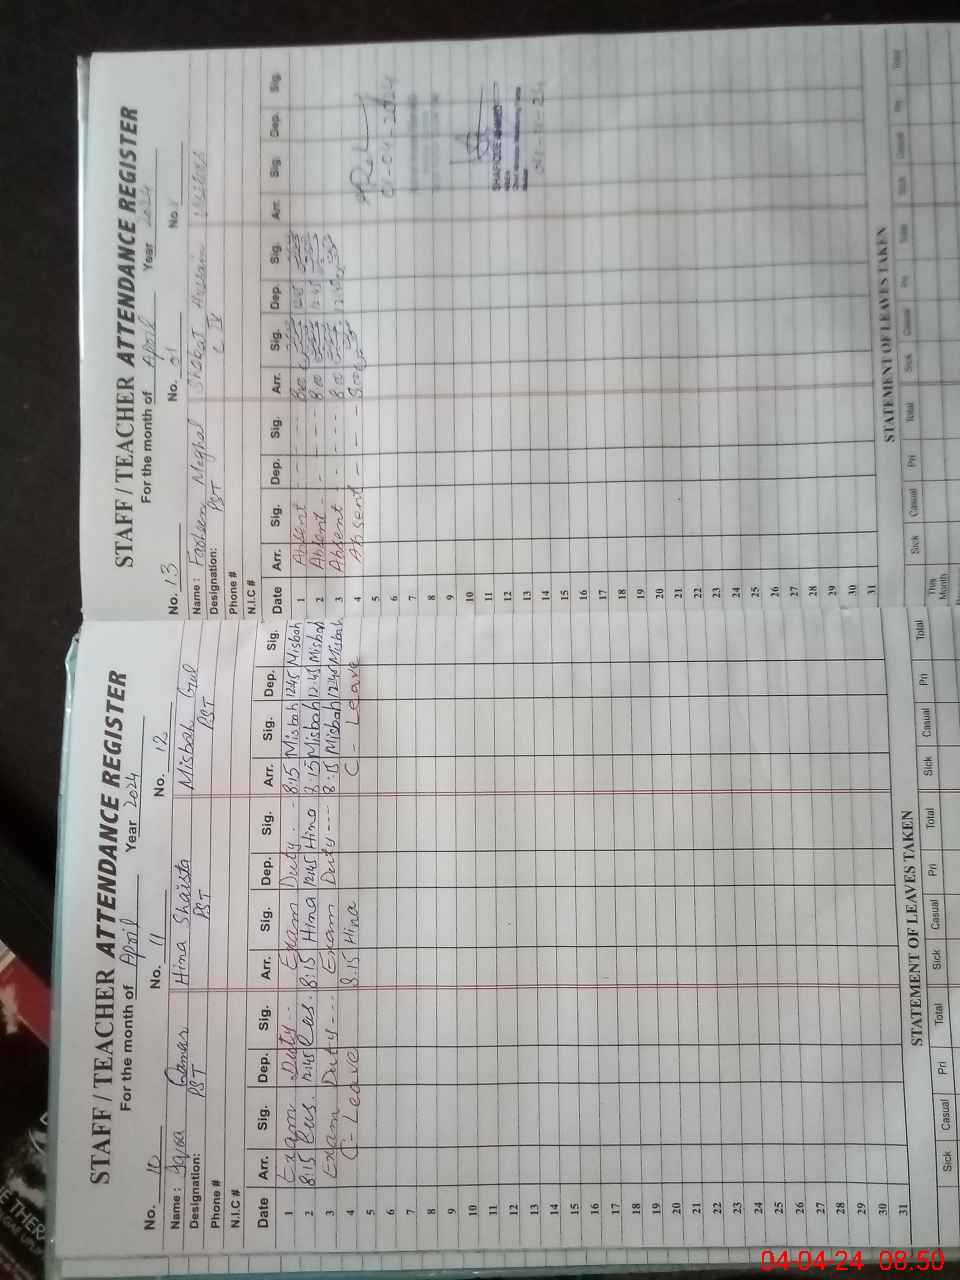 STAFF / TEACHER ATTENDANCE REGISTER
For the month of April Year 2024
No. 10 No. 11 No. 12
Name : Qamar Hina Shaista Misbah Gul
Designation: PST PST PST
Phone #
N.I.C #
Date Arr. Sig. Dep. Sig. Arr. Sig. Dep. Sig. Arr. Sig. Dep. Sig.
1 Exam Duty -- Exam Duty -- 8:15 Misbah 12:45 Misbah
2 8:15 12:45 8:15 Hina 12:45 Hina 8:15 Misbah 12:45 Misbah
3 Exam Duty --- Exam Duty --- 8:15 Misbah 12:45 Misbah
4 C - Leave 8.15 Hina C - Leave
5
6
7
8
9
10
11
12
13
14
15
16
17
18
19
20
21
22
23
24
25
26
27
28
29
30
31
STATEMENT OF LEAVES TAKEN
Sick Casual Pri Total Sick Casual Pri Total Sick Casual Pri Total
STAFF / TEACHER ATTENDANCE REGISTER
For the month of April Year 2024
No. 13 No. 01 No.
Name : Faheem Mughal Shabot Hussain
Designation: PST
Phone #
N.I.C #
Date Arr. Sig. Dep. Sig. Arr. Sig. Dep. Sig. Arr. Sig. Dep. Sig.
1 Absent - - - - 8:00 12:45
2 Absent - - - - 8:00 12:45
3 Absent - - - - 8:00 12:45
4 Absent - - - 8:00
01-04-2024
5
6
7
8
9
10
11
SHAFIQUE AHMED
12
13
14
15
16
17
18
19
20
21
22
23
24
25
26
27
28
29
30
31
STATEMENT OF LEAVES TAKEN
Sick Casual Pri Total Sick Casual Pri Total Sick Casual Pri Total
This Month
04-04-24 08:50